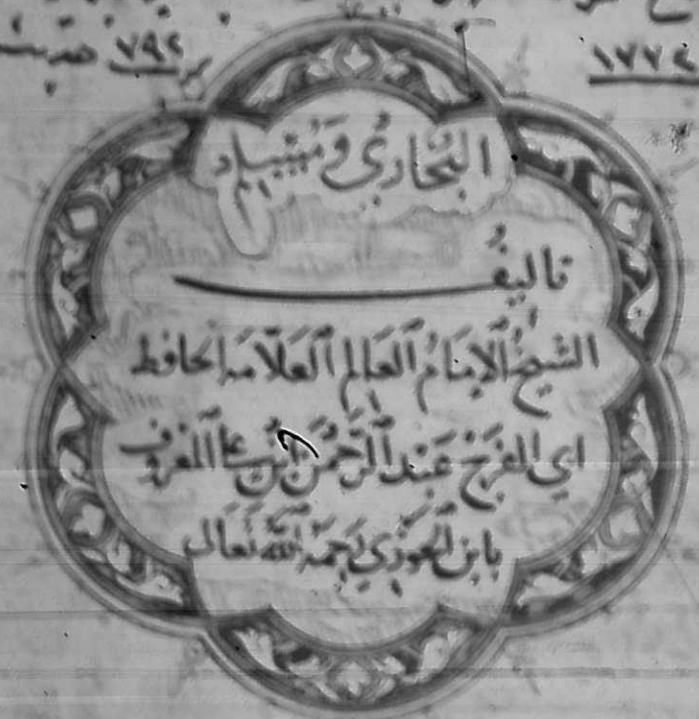 ١٧٧٤
٧٩٢ حديث
البخاري ومسلم
تاليف
الشيخ الامام العالم العلامة الحافظ
ابي الفرج عبد الرحمن ابن علي المعروف
بابن الجوزي رحمه الله تعالى